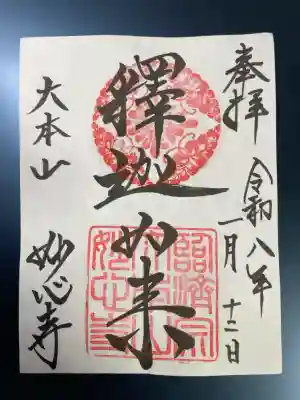 奉拝
令和八年
一月十二日
釋迦如来
大本山
妙心寺